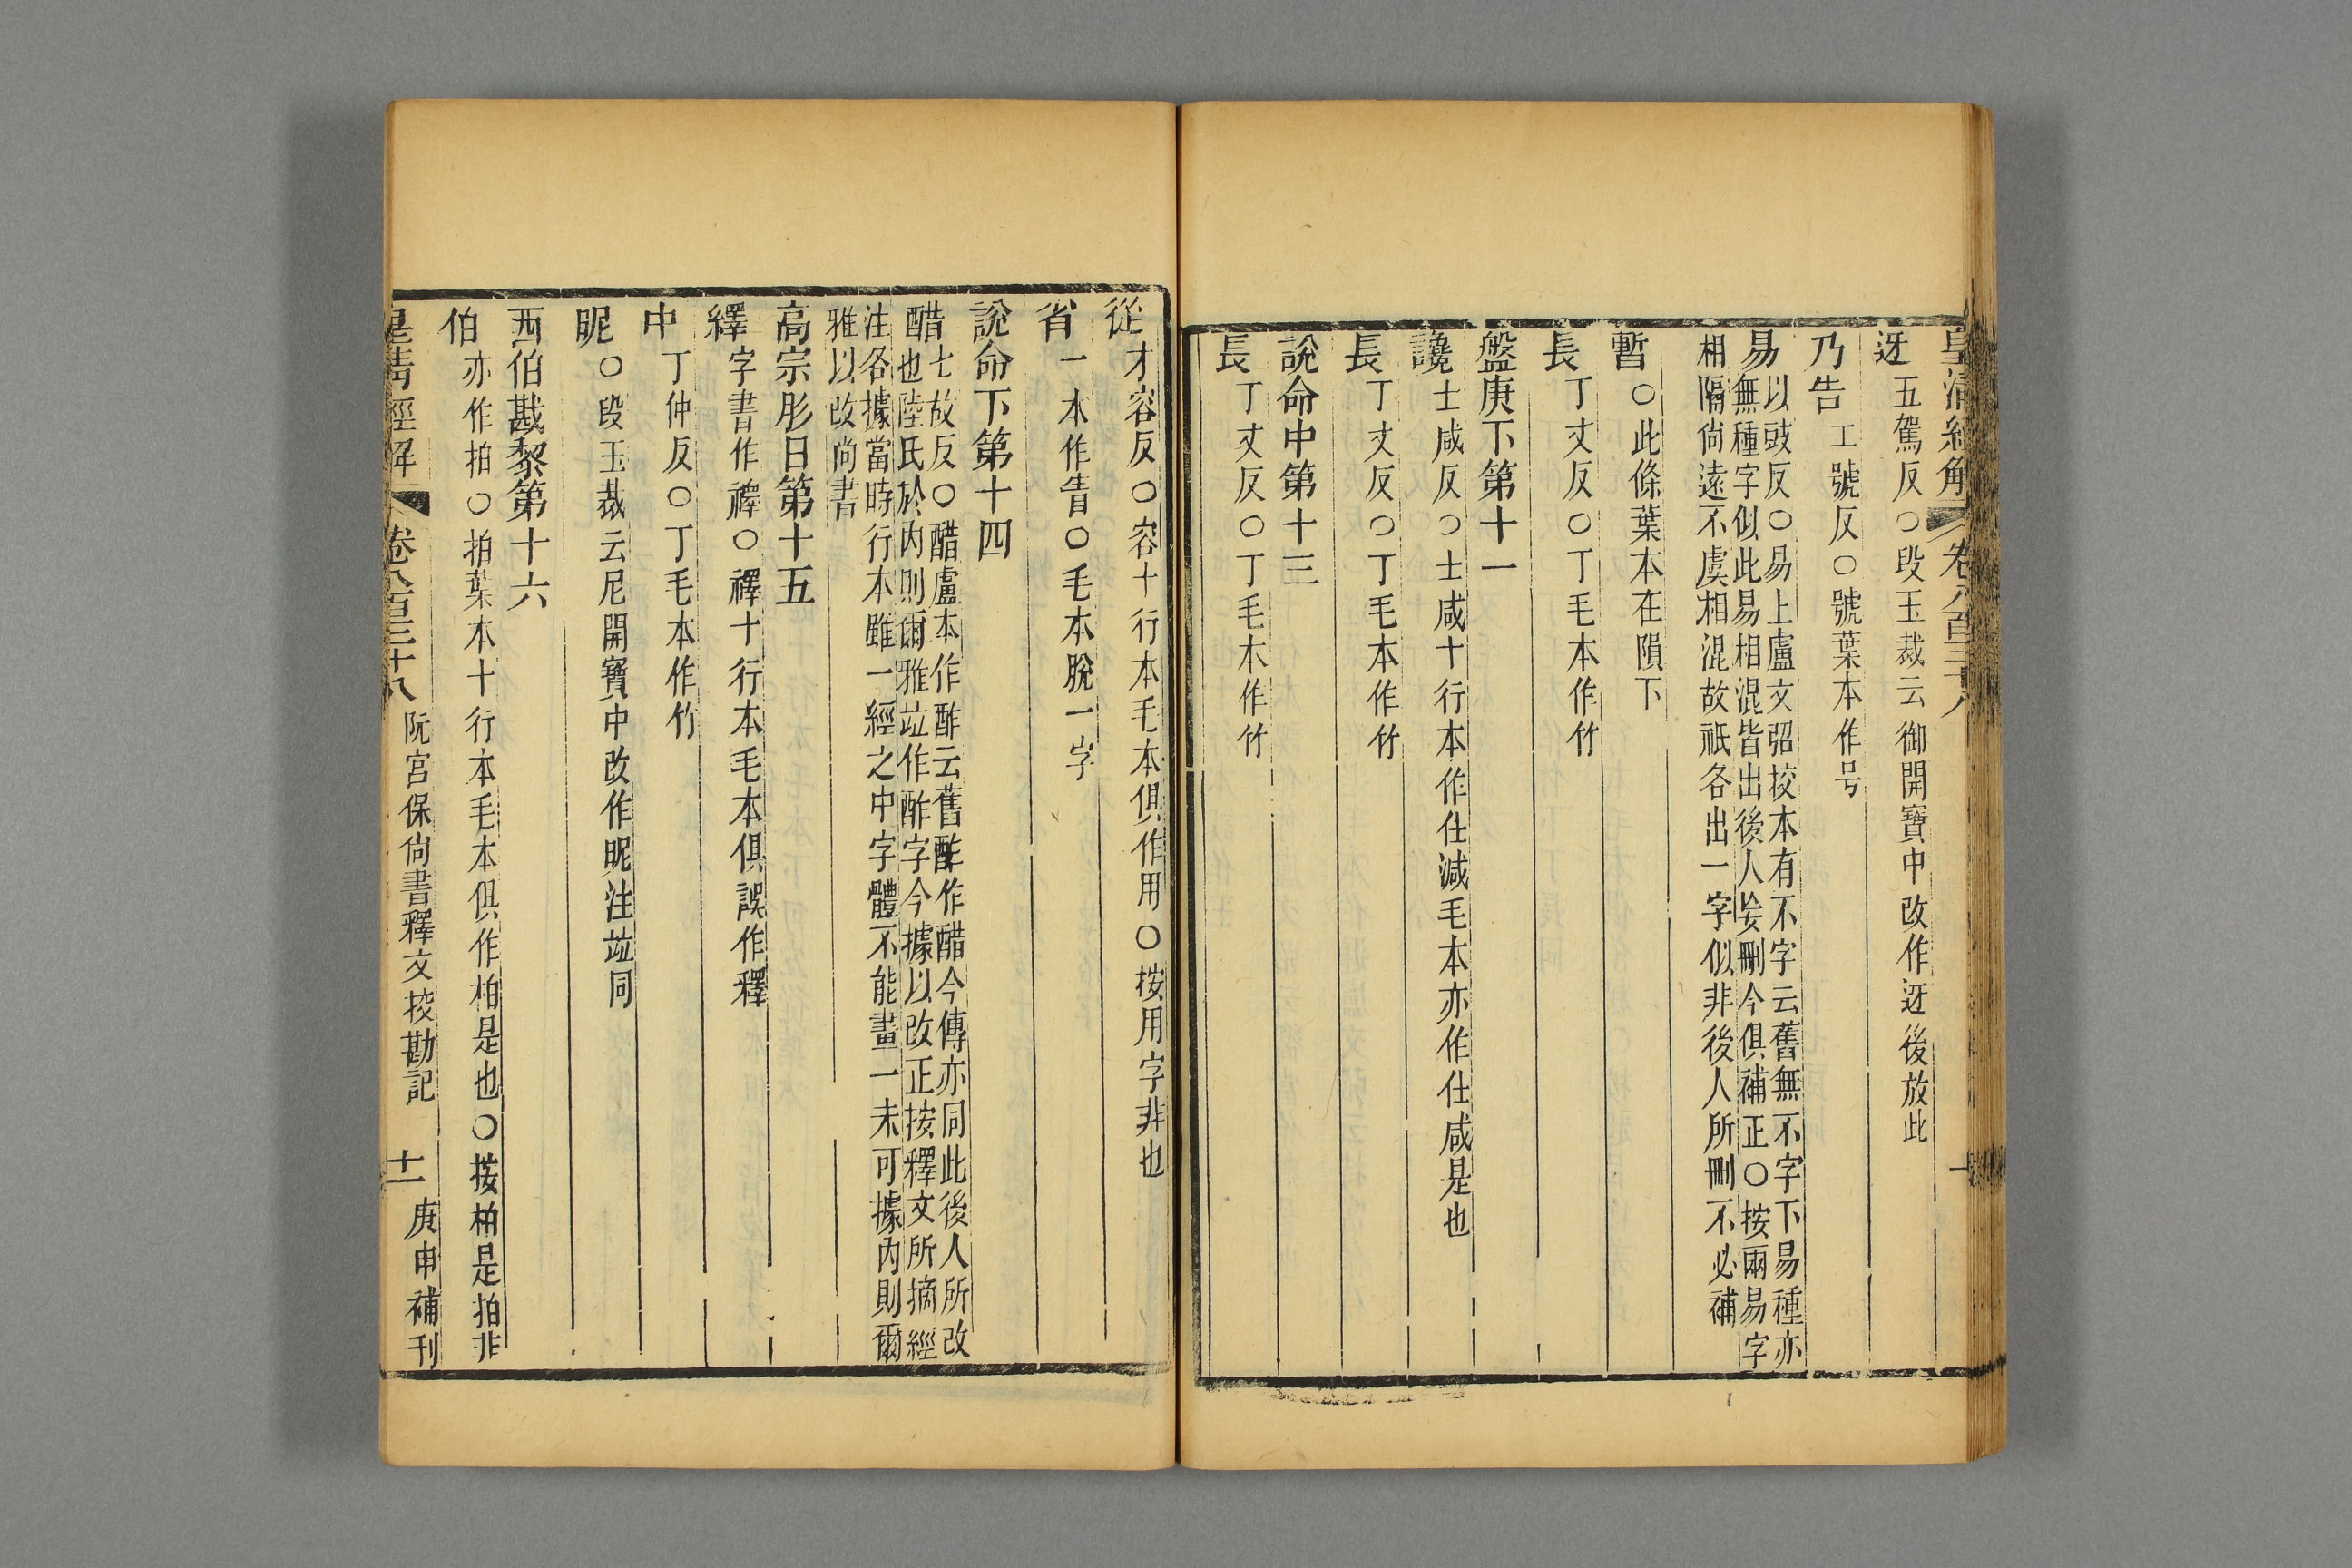 皇清經解 卷八百三十八
迓五駕反○段玉裁云御開寶中改作迓後放此
乃告工號反○號葉本作号
易以豉反○易上盧文弨挍本有不字云舊無不字下易種亦
無種字似此易相混皆出後人妄刪今俱補正○按兩易字
相隔尙遠不虞相混故祇各出一字似非後人所刪不必補
暫○此條葉本在隕下
長丁丈反○丁毛本作竹
盤庚下第十一
讒士咸反○士咸十行本作仕減毛本亦作仕咸是也
長丁丈反○丁毛本作竹
說命中第十三
長丁丈反○丁毛本作竹
從才容反○容十行本毛本俱作用○按用字非也
省一本作眚○毛本脫一字
說命下第十四
醋七故反○醋盧本作酢云舊酢作醋今傳亦同此後人所改
也陸氏於內則爾雅竝作酢字今據以改正按釋文所摘經
注各據當時行本雖一經之中字體不能畫一未可據內則爾
雅以改尙書
高宗肜日第十五
繹字書作襗○襗十行本毛本俱誤作釋
中丁仲反○丁毛本作竹
昵○段玉裁云尼開寶中改作昵注竝同
西伯戡黎第十六
伯亦作拍○拍葉本十行本毛本俱作柏是也○按柏是拍非
皇清經解 卷八百三十八 阮宮保尙書釋文挍勘記 十一 庚申補刊